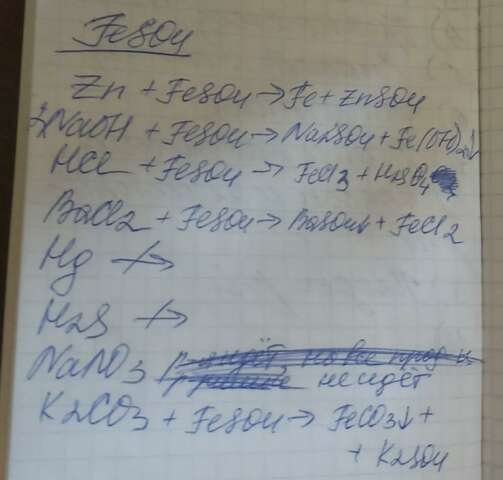 FeSO4
Zn + FeSO4 → Fe + ZnSO4
2NaOH + FeSO4 → Na2SO4 + Fe(OH)2↓
HCl + FeSO4 → FeCl3 + H2SO4
BaCl2 + FeSO4 → BaSO4 + FeCl2
Hg -/→
H2S -/→
NaNO3 не идёт
K2CO3 + FeSO4 → FeCO3↓ +
+ K2SO4